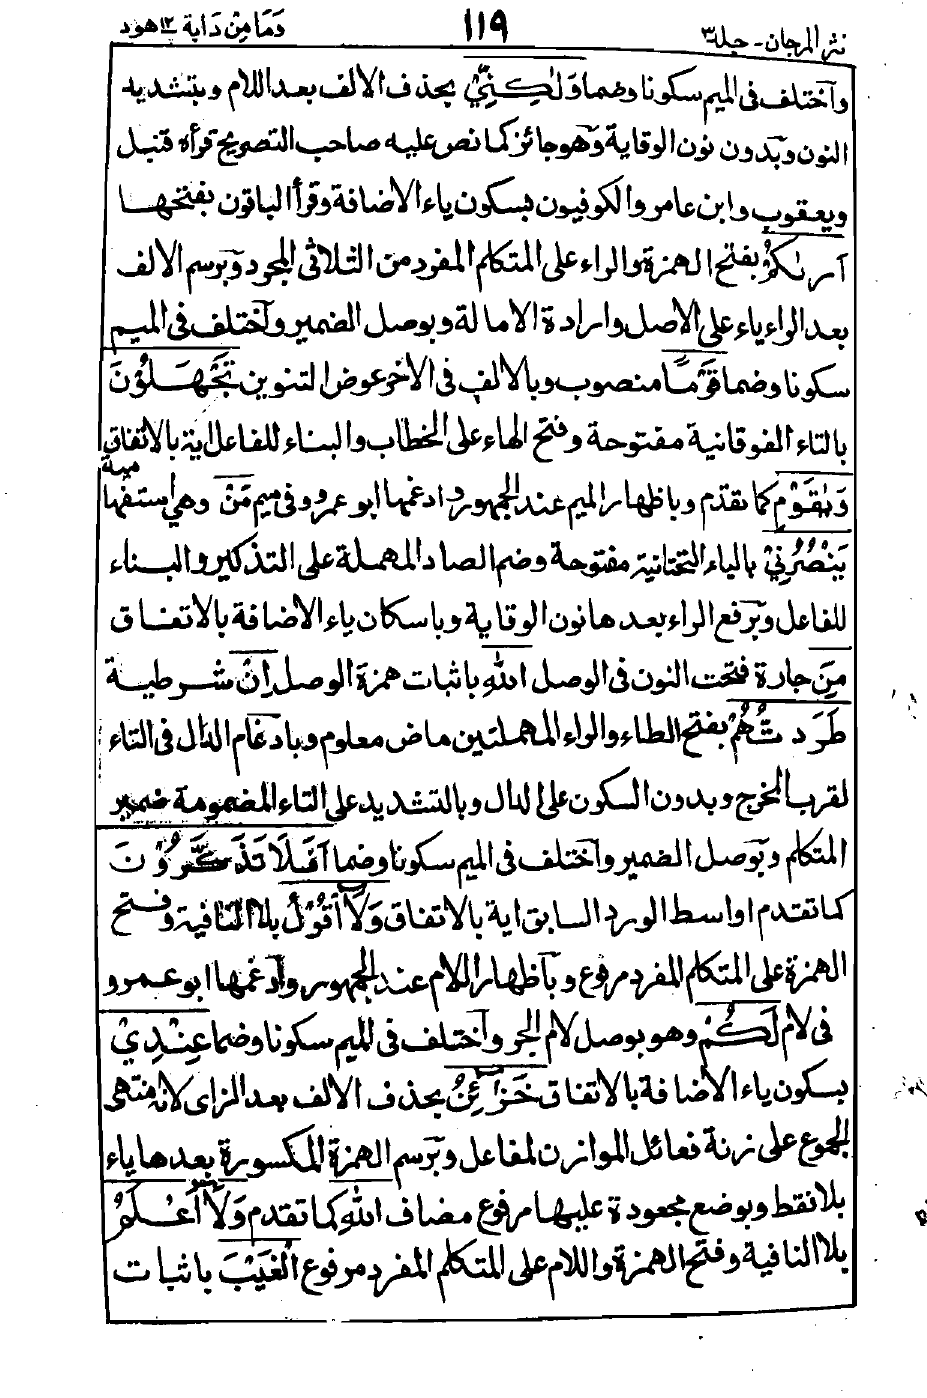 نثر المرجان - جلد٣
١١٩
وَمَا مِنْ دَابة ١٢ هود
وآختلف فى الميم سكونا وضما وَلٰكِنِّيْٓ بحذف الالف بعد اللام وبتشديد
النون وبدون نون الوقاية وهو جائز كما نص عليه صاحب التصريح قرأه قنبل
ويعقوب وابن عامر والكوفيون بسكون ياء الاضافة وقرأ الباقون بفتحها
اَرٰىكُمْ بفتح الهمزة والراء على المتكلم المفرد من الثلاثى المجرد وبرسم الالف
بعد الراء ياء على الاصل وارادة الامالة وبوصل الضمير وآختلف فى الميم
سكونا وضما قَوْمًا منصوب وبالالف فى الاخر عوض التنوين تَجْهَلُوْنَ
بالتاء الفوقانية مفتوحة وفتح الهاء على الخطاب والبناء للفاعل اية بالاتفاق
وَيٰقَوْمِ كما تقدم وباظهار الميم عند الجمهور وادغمها ابو عمرو فى ميم مَنْ وهى استفهامية
يَنْصُرُنِيْ بالياء التحتانية مفتوحة وضم الصاد المهملة على التذكير والبناء
للفاعل وبرفع الراء بعدها نون الوقاية وباسكان ياء الاضافة بالاتفاق
مِنَ جارة فتحت النون فى الوصل اللهِ باثبات همزة الوصل اِنْ شرطية
طَرَدْتُّهُمْ بفتح الطاء والراء المهملتين ماض معلوم وبادغام الدال فى التاء
لقرب المخرج وبدون السكون على الدال وبالتشديد على التاء المضمومة ضمير
المتكلم وبوصل الضمير وآختلف فى الميم سكونا وضما اَفَلَا تَذَكَّرُوْنَ
كما تقدم اواسط الورد السابق اية بالاتفاق وَلَآ اَقُوْلُ بلا النافية وفتح
الهمزة على المتكلم المفرد مرفوع وبآظهار اللام عند الجمهور وآدغمها ابو عمرو
فى لام لَكُمْ وهو بوصل لام الجر وآختلف فى الميم سكونا وضما عِنْدِيْ
بسكون ياء الاضافة بالاتفاق خَزَآئِنُ بحذف الالف بعد الزاى لانه منتهى
الجموع على زنة فعائل الموازن لمفاعل وبرسم الهمزة المكسورة بعدها ياء
بلا نقط وبوضع مجعودة عليها مرفوع مضاف اللهِ كما تقدم وَلَآ اَعْلَمُ
بلا النافية وفتح الهمزة واللام على المتكلم المفرد مرفوع الْغَيْبَ باثبات